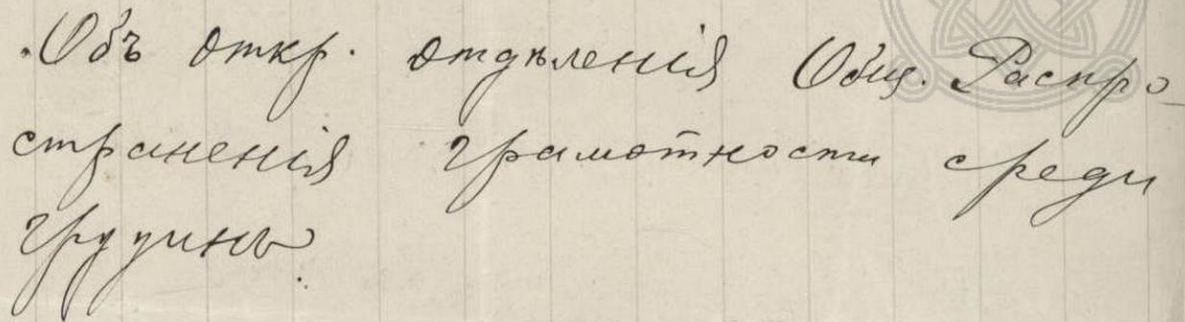 Объ откр. отдѣленія Общ. Распро-
страненія грамотности среди
грузинъ.